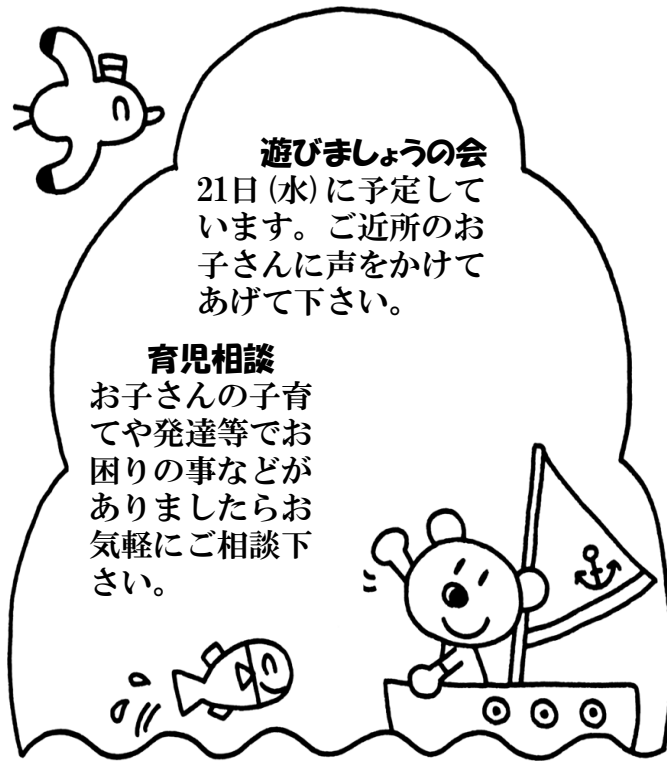 遊びましょうの会
21日(水)に予定して
います。ご近所のお
子さんに声をかけて
あげて下さい。
育児相談
お子さんの子育
てや発達等でお
困りの事などが
ありましたらお
気軽にご相談下
さい。